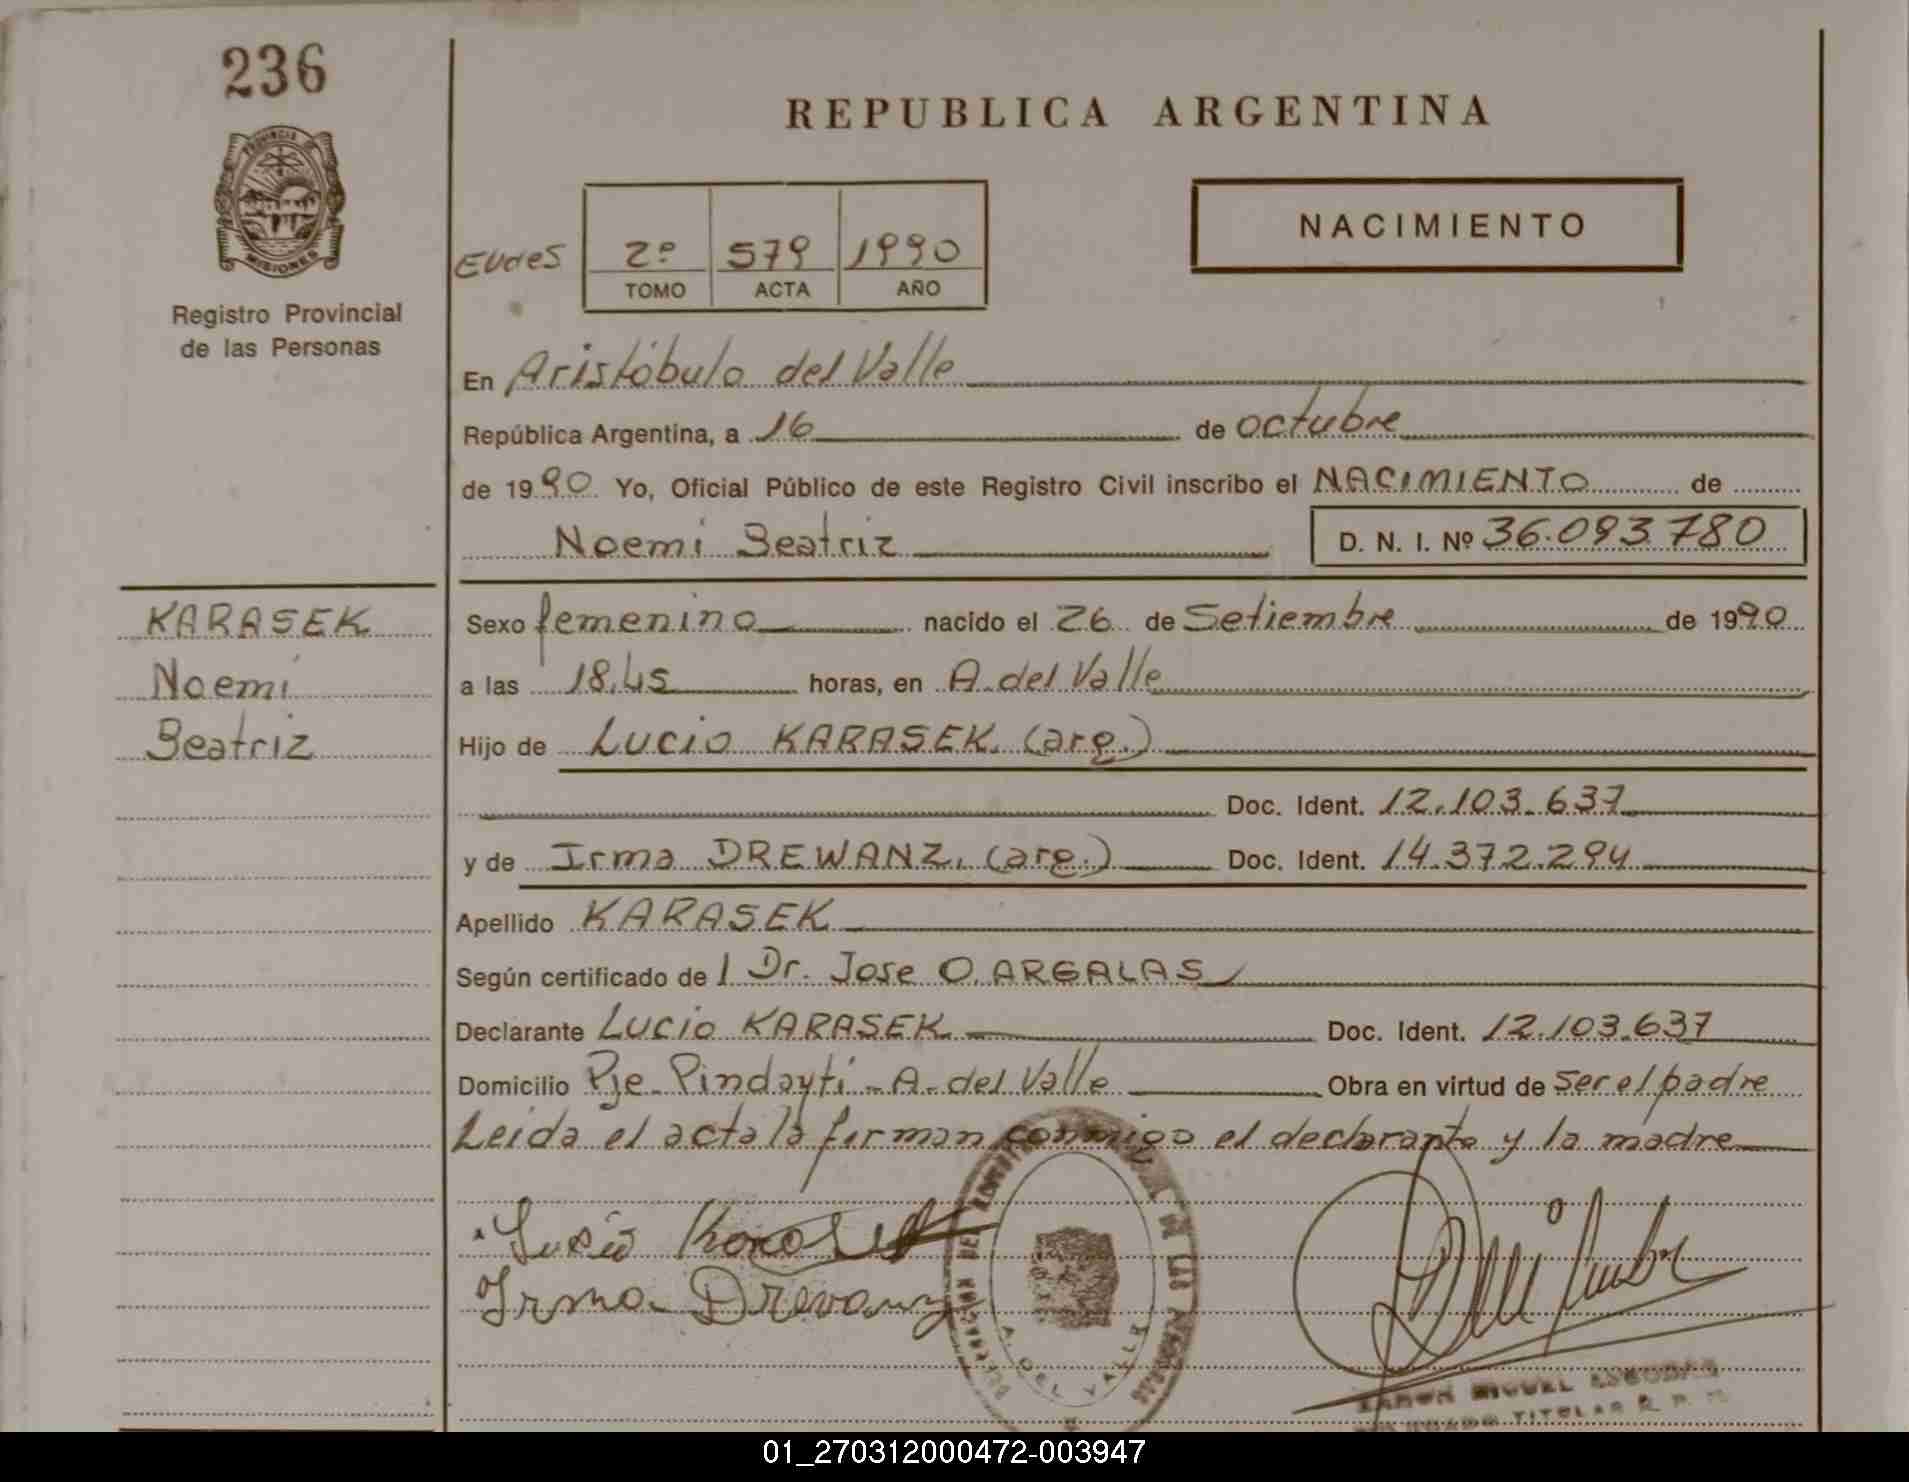 236
PROVINCIA DE
MISIONES
Registro Provincial
de las Personas
KARASEK
Noemi
Beatriz
REPUBLICA ARGENTINA
NACIMIENTO
2º 579 1990
TOMO ACTA AÑO
En Aristóbulo del Valle
República Argentina, a 16 de octubre
de 1990 Yo, Oficial Público de este Registro Civil inscribo el NACIMIENTO de
Noemi Beatriz D. N. I. Nº 36.093.780
Sexo femenino nacido el 26 de Setiembre de 1990
a las 18,45 horas, en A. del Valle
Hijo de Lucio KARASEK (arg.)
Doc. Ident. 12.103.637
y de Irma DREWANZ, (arg.) Doc. Ident. 14.372.294
Apellido KARASEK
Según certificado de l Dr. Jose O. ARGALAS
Declarante Lucio KARASEK Doc. Ident. 12.103.637
Domicilio Pje. Pindaytí - A. del Valle Obra en virtud de ser el padre
Leida el acta la firman conmigo el declarante y la madre
Lucio Karasek
Irma Drewanz
A. DEL VALLE
RAMON MIGUEL ESCOBAR
TITULAR R. P.
01_270312000472-003947